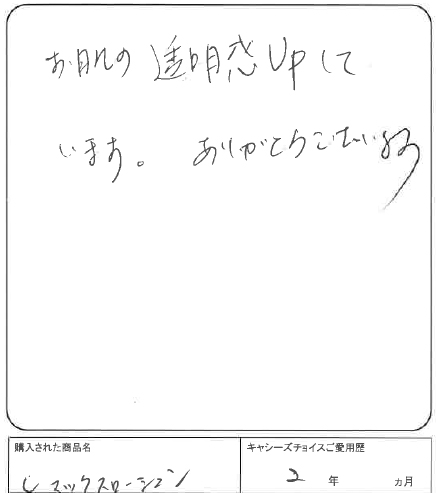 お肌の透明感UPして
います。ありがとうございます
購入された商品名
キャシーズチョイスご愛用歴
Cマックスローション
2年 ヵ月